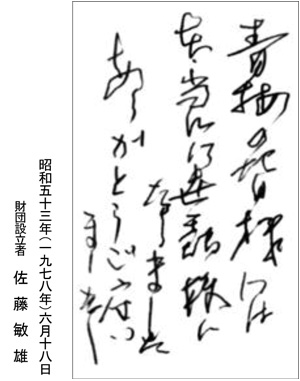 青梅の皆様には
本当に世話様に
なりました
ありがとうござい
ました
昭和五十三年(一九七八年)六月十八日
財団設立者 佐藤敏雄